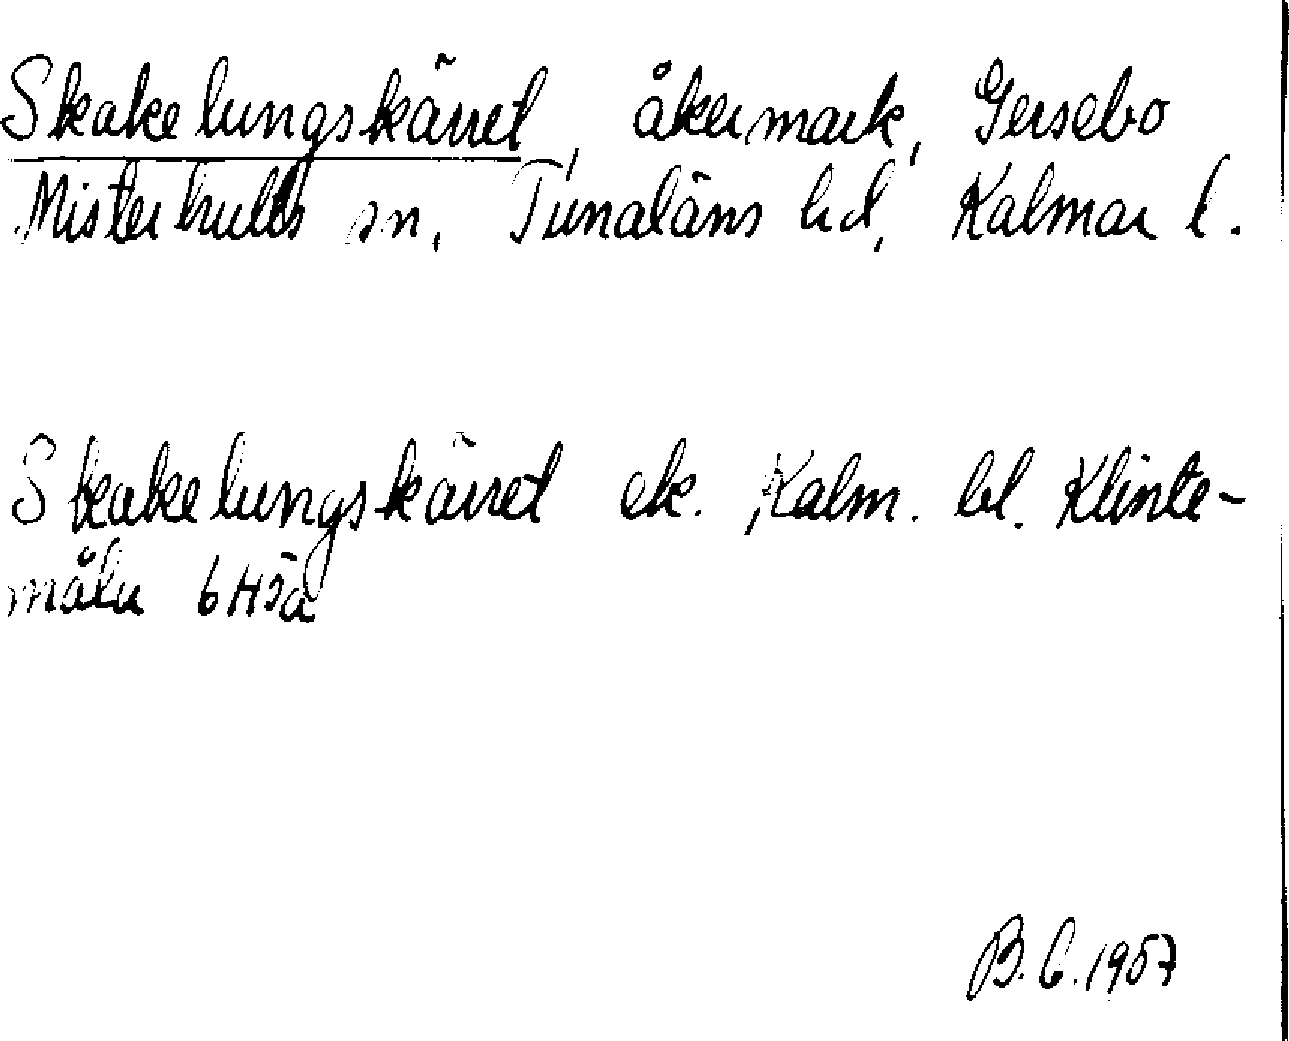 Skakelungskärret, åkermark, Gersebo
Misterhults sn, Tunaläns hd, Kalmar l.
Skakelungskärret ek. Kalm. bl. Klinte-
måla 6H5a
B.C. 1957